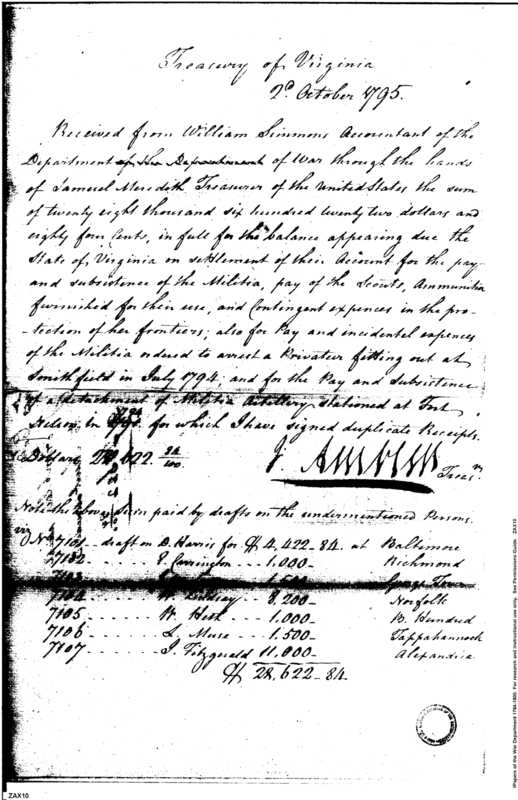 Treasury of Virginia
2d October 1795.
Received from William Simmons Accountant of the
Department of the Department of War through the hands
of Samuel Meredith Treasurer of the United States the sum
of twenty eight thousand six hundred twenty two dollars and
eighty four Cents, in full for the balance appearing due the
State of Virginia on settlement of their Account for the pay
and subsistence of the Militia, pay of the Scouts, Ammunition
furnished for their use, and Contingent expences in the pro-
tection of her frontiers; also for Pay and incidental expences
of the Militia ordered to arrest a Privateer fitting out at
Smithfield in July 1794; and for the Pay and Subsistence
of a detachment of Militia Artillery stationed at Fort
Nelson in for which I have signed duplicate Receipts.
Dollars 28,622 84/100
J. Treasr.
Note the above been paid by drafts on the undermentioned Persons.
viz No. 7101 draft on D. Harris for $ 4,422-84. at Baltimore
7102 E Carrington 1,000- Richmond
7103 1,500- George Town
7104 W. Lindsay 8,200- Norfolk
7105 W. Heth 1,000- B. Hundred
7106 L. Muse 1,500- Tappahannock
7107 J. Fitzgerald 11,000- Alexandria
$ 28,622-84.
ZAX10
Papers of the War Department 1784-1800. For research and instructional use only. See Permissions Guide. ZAX10